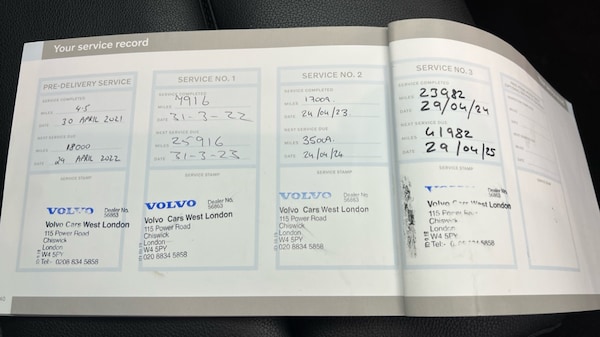 Your service record
PRE-DELIVERY SERVICE
SERVICE COMPLETED
MILES 45
DATE 30 APRIL 2021
NEXT SERVICE DUE
MILES 18000
DATE 29 APRIL 2022
SERVICE STAMP
VOLVO Dealer No.
56863
Volvo Cars West London
115 Power Road
Chiswick
London
W4 5PY
Tel:- 0208 834 5858
SERVICE NO. 1
SERVICE COMPLETED
MILES 7916
DATE 31-3-22
NEXT SERVICE DUE
MILES 25916
DATE 31-3-23
SERVICE STAMP
VOLVO Dealer No.
56863
Volvo Cars West London
115 Power Road
Chiswick
London
W4 5PY
020 8834 5858
SERVICE NO. 2
SERVICE COMPLETED
MILES 17009.
DATE 24/04/23.
NEXT SERVICE DUE
MILES 35009.
DATE 24/04/24
SERVICE STAMP
VOLVO Dealer No.
56863
Volvo Cars West London
115 Power Road
Chiswick
London
W4 5PY
020 8834 5858
SERVICE NO. 3
SERVICE COMPLETED
MILES 23982
DATE 29/04/24
NEXT SERVICE DUE
MILES 41982
DATE 29/04/25
SERVICE STAMP
VOLVO Dealer No.
56863
Volvo Cars West London
115 Power
Chiswick
London
W4 5PY